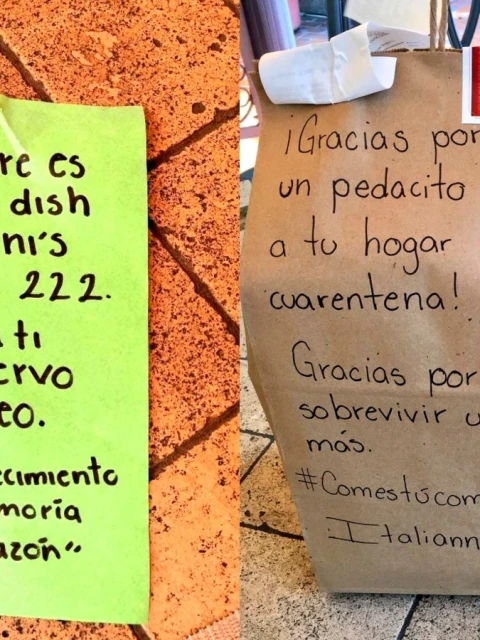 re es
dish
ni's
222.
ti
ervo
eo.
ecimiento
moria
azón"
¡Gracias por
un pedacito
a tu hogar
cuarentena!
Gracias por
sobrevivir u
más.
#Comestúcom
Italiann